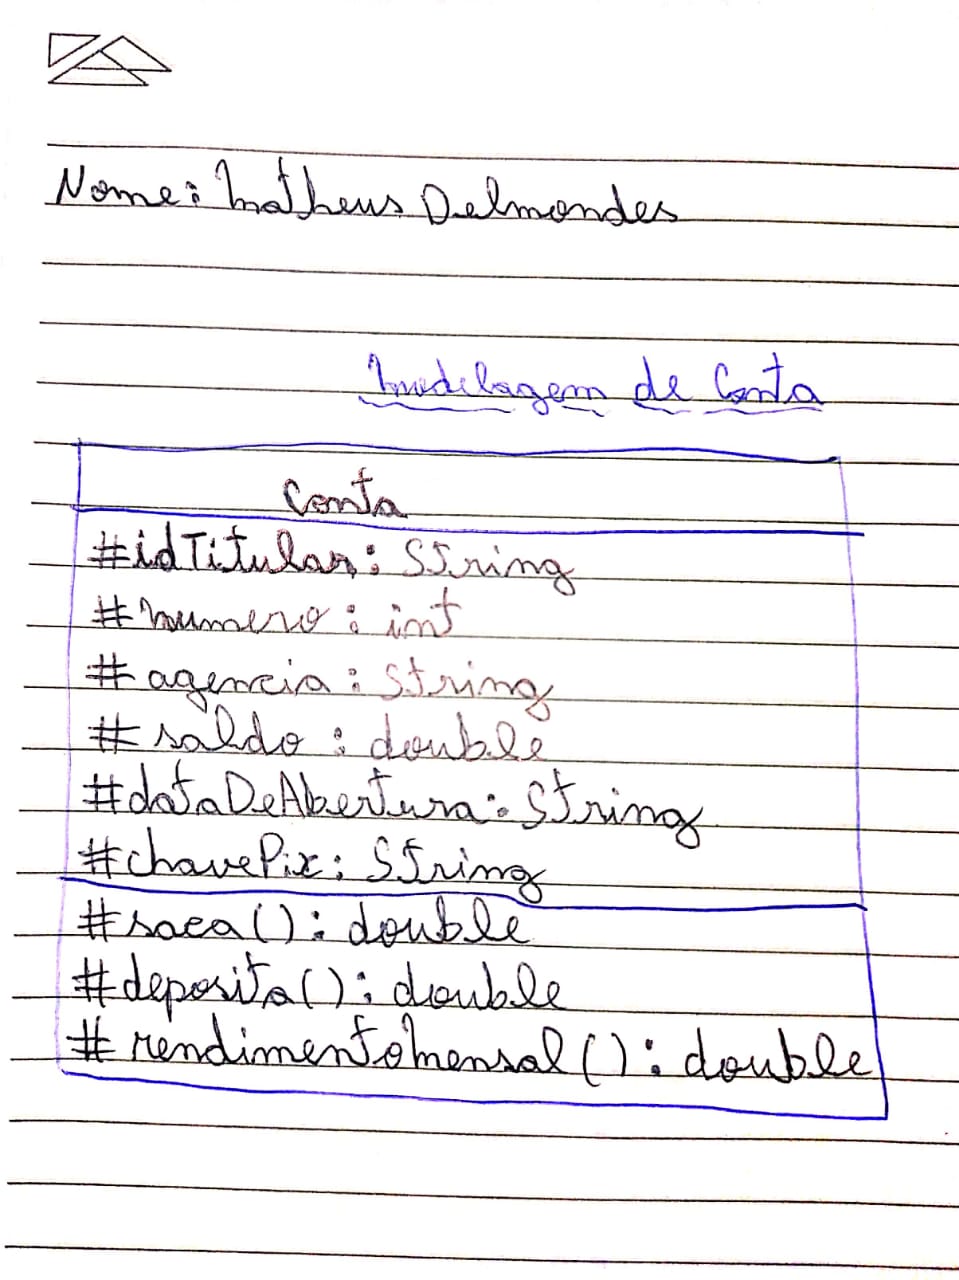 Nome: Matheus Delmondes
Modelagem de Conta
Conta
#idTitular: String
# numero: int
# agencia: String
# saldo: double
#dataDeAbertura: String
#chavePix: String
#saca(): double
#deposita(): double
# rendimentoMensal(): double